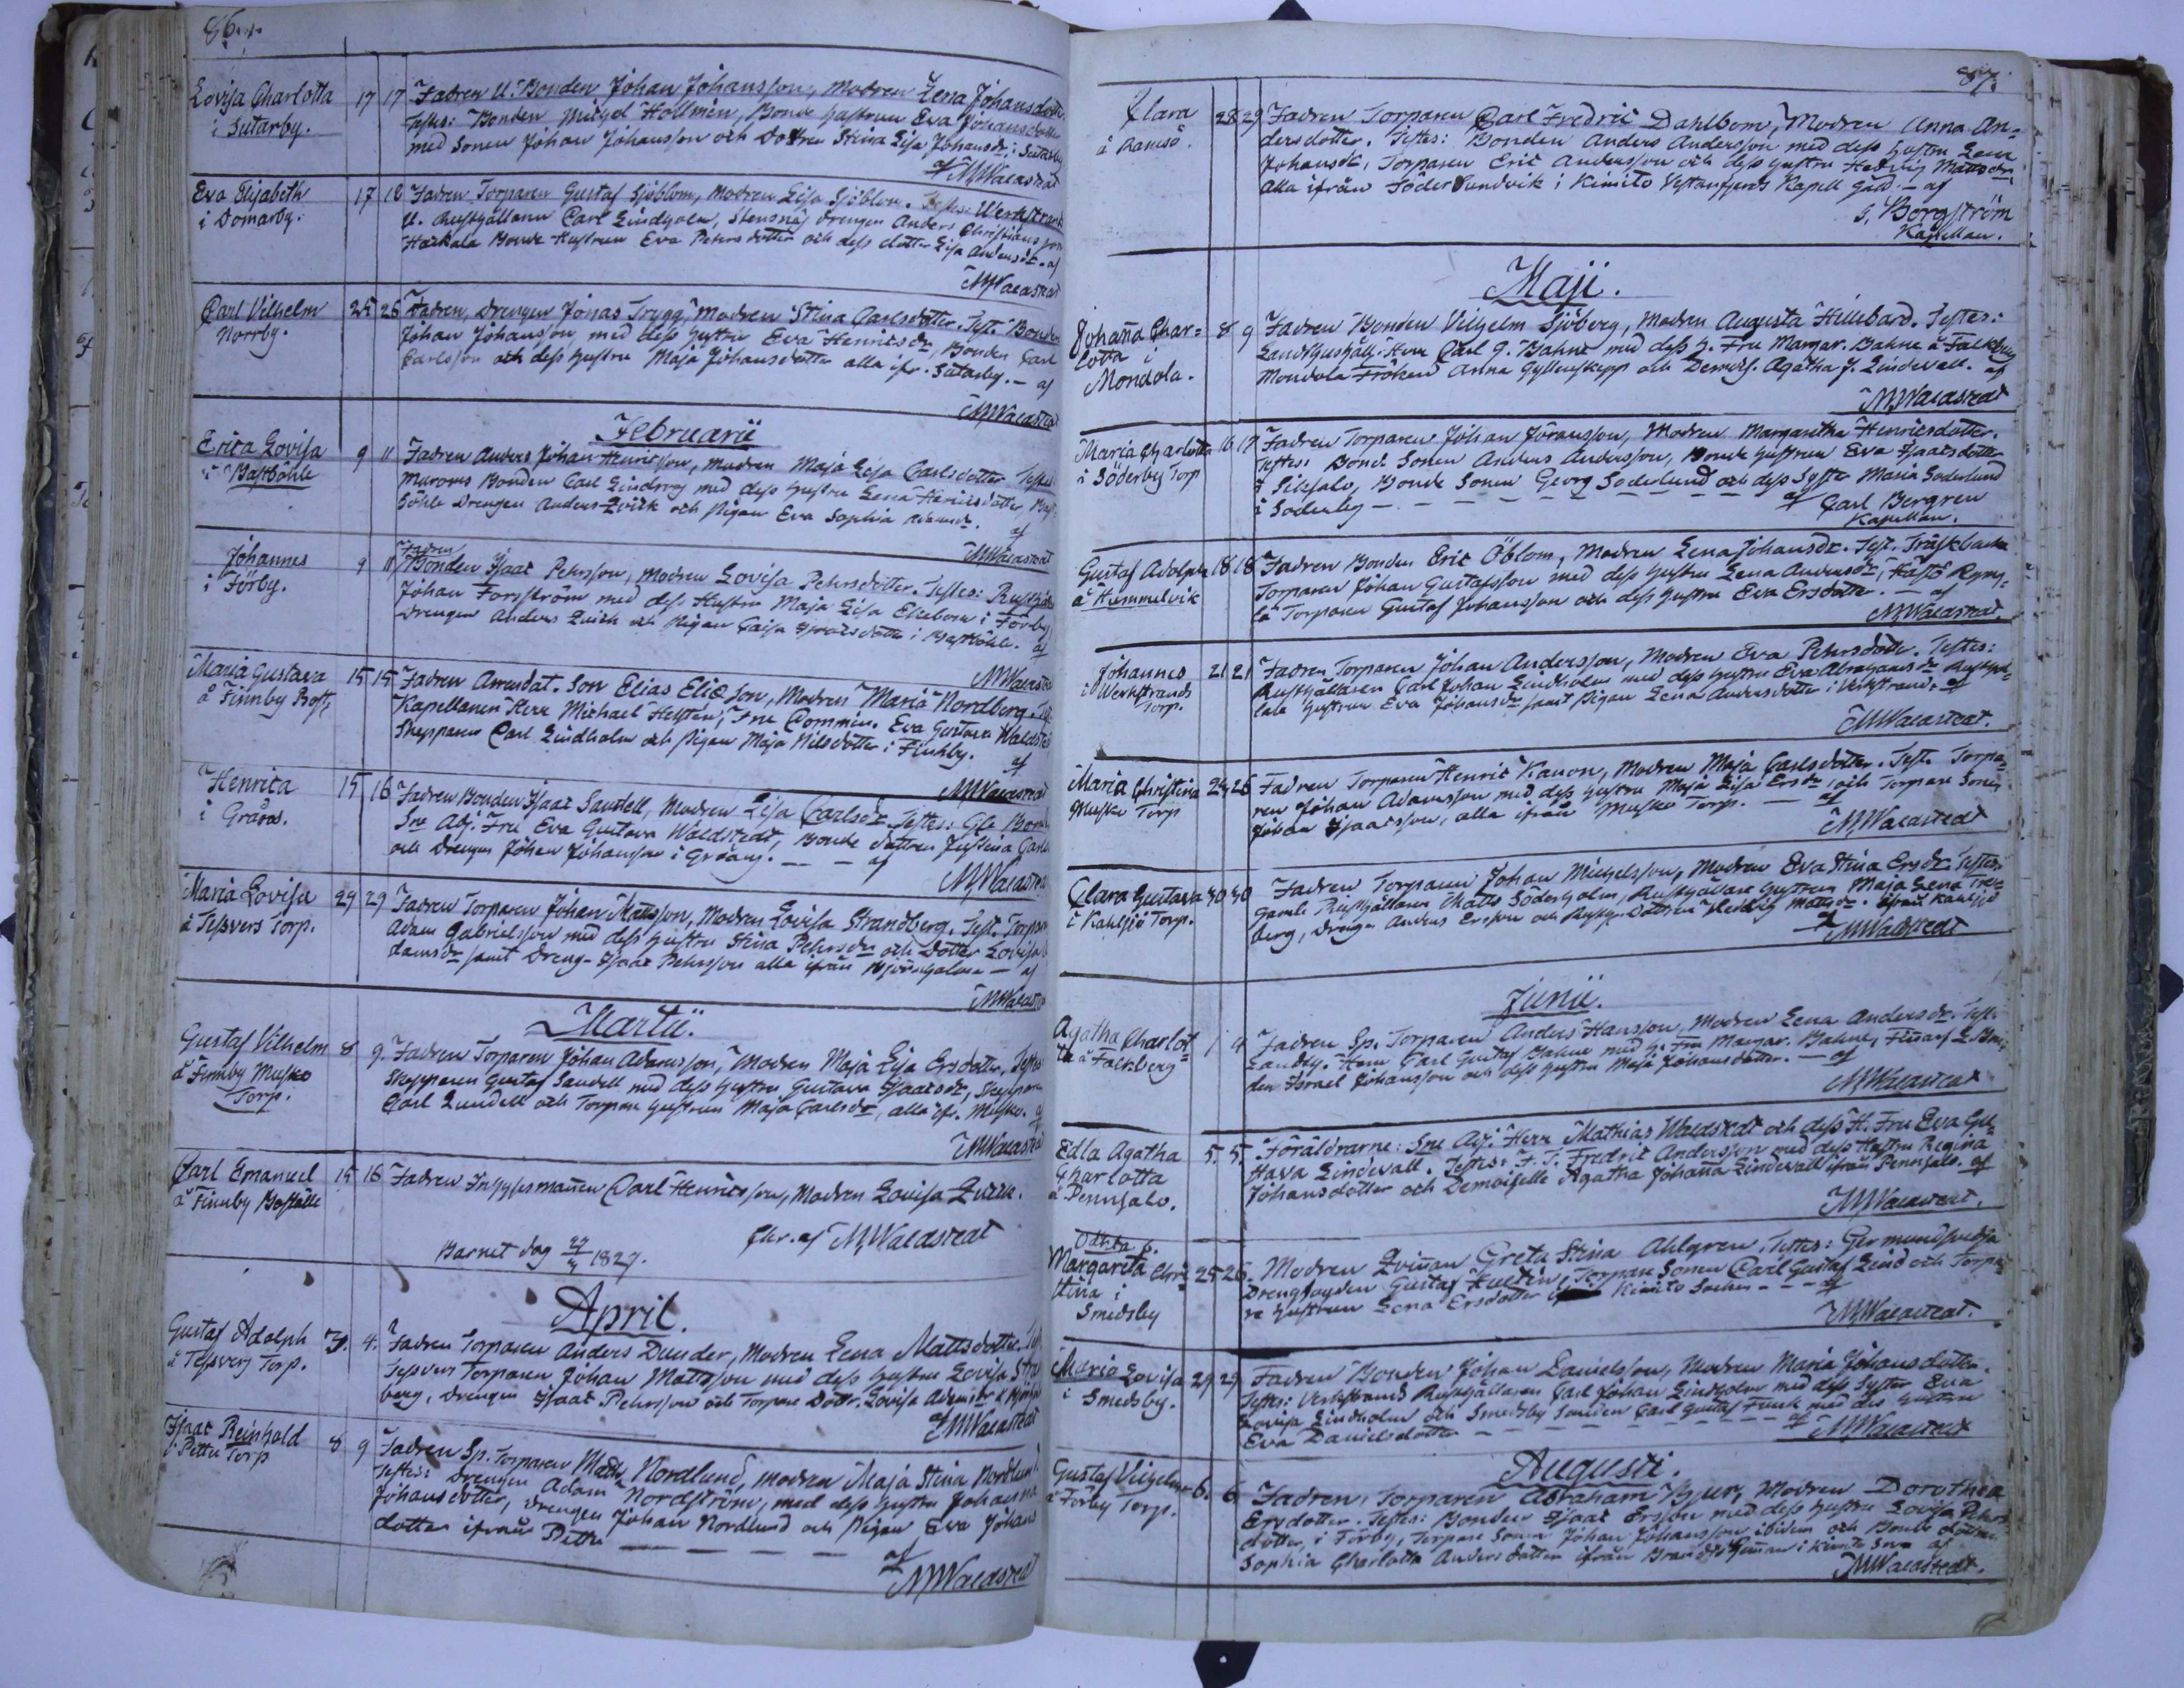 86.
Lovisa Charlotta 17 17 Fadren U. Bonden Johan Johansson, Modren Lena Johansdotter
i Sutarby. Testes: Bonden Michel Hollmén, Bonde hustrun Eva Johansdotter
med Sonen Johan Johansson och Dottren Stina Lisa Johansdr i Sutarby
af MWaldstedt
Eva Elisabeth 17 18 Fadren Torparen Gustaf Sjöblom, Modren Lisa Sjöblom. Testes: Werkstrands
i Domarby. U. Rusthållarn Carl Lindholm, Stensnäs drengen Anders Christiansson
Harkala Bonde Hustrun Eva Petersdotter och dess dotter Lisa Andersdr. af
MWaldstedt
Carl Vilhelm 25 26 Fadren, Drengen Jonas Trygg, Modren Stina Carlsdotter. Test. Bonden
Norrby. Johan Johansson med dess hustru Eva Henricsdr, Bonden Carl
Carlsson och dess hustru Maja Johansdotter alla ifr. Sutarby. – af
MWaldstedt
Februarii
Erica Lovisa 9 11 Fadren Anders Johan Henricsson, Modren Maja Lisa Carlsdotter Testes:
i Bastböhle Bonden Carl Lindroos med dess hustru Lena Henricsdotter, Bast-
böhle Drengen Anders Qvick och Pigan Eva Sophia
af
MWaldstedt
Johannes 9 11 Fadren
i Förby. Bonden Isaac Pehrsson, Modren Lovisa Pehrsdotter. Testes: Rusthåll.
Johan Forsström med dess Hustru Maja Lisa Ekebom i Förby,
Drengen Anders Quick och Pigan Caisa Isacsdotter i Bastböhle. af
MWaldstedt
Maria Gustava 15 15 Fadren Arrendat. Son Elias Eliæson, Modren Maria Nordberg. Test.
å Finnby Bost. Kapellanen Herr Michael Hellsten, Fru Commin. Eva Gustava Waldstedt
Skepparen Carl Lindholm och Pigan Maja Nilsdotter i Finnby.
af
MWaldstedt
Henrica 15 16 Fadren Bonden Isaac Sandell, Modren Lisa Carlsdr Testes:
i Gråås. Sne Adj. Fru Eva Gustava Waldstedt, Bonde dottren Justina
och Drengen Johan Johansson i — — af
MWaldstedt
Maria Lovisa 29 29 Fadren Torparen Johan Mattsson, Modren Lovisa Strandberg. Test. Torparen
å Tessvers Torp. Adam Gabrielsson med dess hustru Stina Pehrsdr och Dotter Lovisa A
damsdr samt Dreng- Isaac Pehrsson alla ifrån — af
MWaldstedt
Martii.
Gustaf Vilhelm 8 9. Fadren Torparen Johan Adamsson, Modren Maja Lisa Ersdotter, Testes
å Finnby Musko Skepparen Gustaf Sandell med dess hustru Gustava Isaacsdr, Skepparen
Torp. Carl Lundell och Torpare hustrun Maja Carlsdr, alla ifr. Musko. af
MWaldstedt
Carl Emanuel 15 16 Fadren Inhysesmannen Carl Henricsson, Modren Lovisa Quick.
å Finnby Boställe
Chr. af MWaldstedt
Barnet dog 1827.
April.
Gustaf Adolph 3. 4. Fadren Torparen Anders Dunder, Modren Lena Mattsdotter. Test.
å Tessvers Torp. Tessvers Torparen Johan Mattsson med dess hustru Lovisa Strand
berg, Drengen Isaac Pehrsson och Torpare Dottr. Lovisa Adamsdr
af MWaldstedt
Isaac Reinhold 8 9 Fadren Sp. Torparen Matts Nordlund, Modren Maja Stina Nordlund.
i Pettu Torp Testes: Drengen Adam Nordström, med dess hustru Johanna
Johansdotter, Drengen Johan Nordlund och Pigan Eva Johans
dotter ifrån Pettu — — — —
af
MWaldstedt
87.
Clara 28 29 Fadren Torparen Carl Fredric Dahlbom, Modren Anna An-
å Ramsö. dersdotter. Testes: Bonden Anders Andersson med dess hustru Lena
Johansdr, Torparen Eric Andersson och dess hustru Hedvig Mattsdr.
alla ifrån Södersundvik i Kimito Vestanfjerds Kapell Gäld. – af
Borgström
Kapellan.
Maji.
Johanna Char- 8 9 Fadren Bonden Vilhelm Sjöberg, Modren Augusta Hillebard. Testes:
lotta i Landthushåll. Herr Carl G. Bahne med dess h. Fru Margar. Bahne å Falkberg
Mondola. Mondola Fröken Anna Gyllenskepp och Demois. Agatha J. Lindevall. af
MWaldstedt
Maria Charlotta 16 17 Fadren Torparen Johan Göransson, Modren Margaretha Henricsdotter.
i Söderby Torp Testes: Bonde Sonen Anders Andersson, Bonde hustrun Eva Isaacsdotter
f. Piksalo, Bonde Sonen Georg Söderlund och dess Syster Maria Söderlund
i Söderby — — — — — — — af Carl Bergren
Kapellan.
Gustaf Adolph 18 18 Fadren Bonden Eric Öblom, Modren Lena Johansdr. Test. Träskbacka
å Hummelvik Torparen Johan Gustafsson med dess hustru Lena Andersdr,
Torparen Gustaf Johansson och dess hustru Eva Ersdotter. — af
MWaldstedt.
Johannes 21 21 Fadren Torparen Johan Andersson, Modren Eva Pehrsdotter. Testes:
i Werkstrands Rusthållaren Carl Johan Lindholm med dess hustru Eva Abrahamsdr Rusthål-
Torp. lare hustrun Eva Johansdr samt Pigan Lena Andersdotter i Verkstrand. af
MWaldstedt.
Maria Christina 24 26 Fadren Torparen Henric Kanon, Modren Maja Carlsdotter. Test. Torpa-
Musko Torp ren Johan Adamsson med dess hustru Maja Lisa Ersdr och Torpare Sonen
Johan Isaacsson, alla ifrån Musko Torp. — af
MWaldstedt
Clara Gustava 30 30 Fadren Torparen Johan Michelsson, Modren Eva Stina Ersdr. Testes:
i Kahlsjö Torp. Gamle Rusthållaren Matts Söderholm, Rusthållare hustrun Maja Lena
berg, Dreng. Anders Ersson och Rusth. Dottren Hedvig Mattsdr. ifrån Kahlsjö
af MWaldstedt
Junii.
Agatha Charlot- 1 4 Fadren Sp. Torparen Anders Hansson, Modren Lena Andersdr. Test.
ta å Falkberg Landth. Herr Carl Gustaf Bahne med h. Fru Margar. Bahne,
den Israel Johansson och dess hustru Maja Johansdotter. — af
MWaldstedt
Edla Agatha 5. 5. Föräldrarne: Sne Adj. Herr Mathias Waldstedt och dess H. Fru Eva Gu-
Charlotta stava Lindevall. Testes: F. J. Fredric Andersson med dess Hustru Regina
å Pennjalo. Johansdotter och Demoiselle Agatha Johanna Lindevall ifrån Pennjalo. af
MWaldstedt.
Oäkta b.
Margareta Chri- 25 26. Modren Qvinnan Greta Stina Ahlgren, Testes: Germundsvedja
stina i Drengsoyden Gustaf, Torpare Sonen Carl Gustaf Lind och Torpa-
Smedsby re hustrun Lena Ersdotter Kimito Socken – – af
MWaldstedt.
Maria Lovisa 29 29 Fadren Bonden Johan Danielsson, Modren Maria Johansdotter.
i Smedsby. Testes: Verkstrands Rusthållaren Carl Johan Lindholm med dess Syster Eva
Lovisa Lindholm och Smedsby Bonden Carl Gustaf med des hustru
Eva Danielsdotter — — — — — — af MWaldstedt
Augusti.
Gustaf Vilhelm 6. 6. Fadren, Torparen Abraham Bjur, Modren Dorothea
å Förby Torp. Ersdotter. Testes: Bonden Isaac Ersson med dess hustru Lovisa Pehrs-
dotter, i Förby, Torpare Sonen Johan Johansson ibidem och Bonde dottren
Sophia Charlotta Andersdotter ifrån i Kimito Sn af
MWaldstedt.